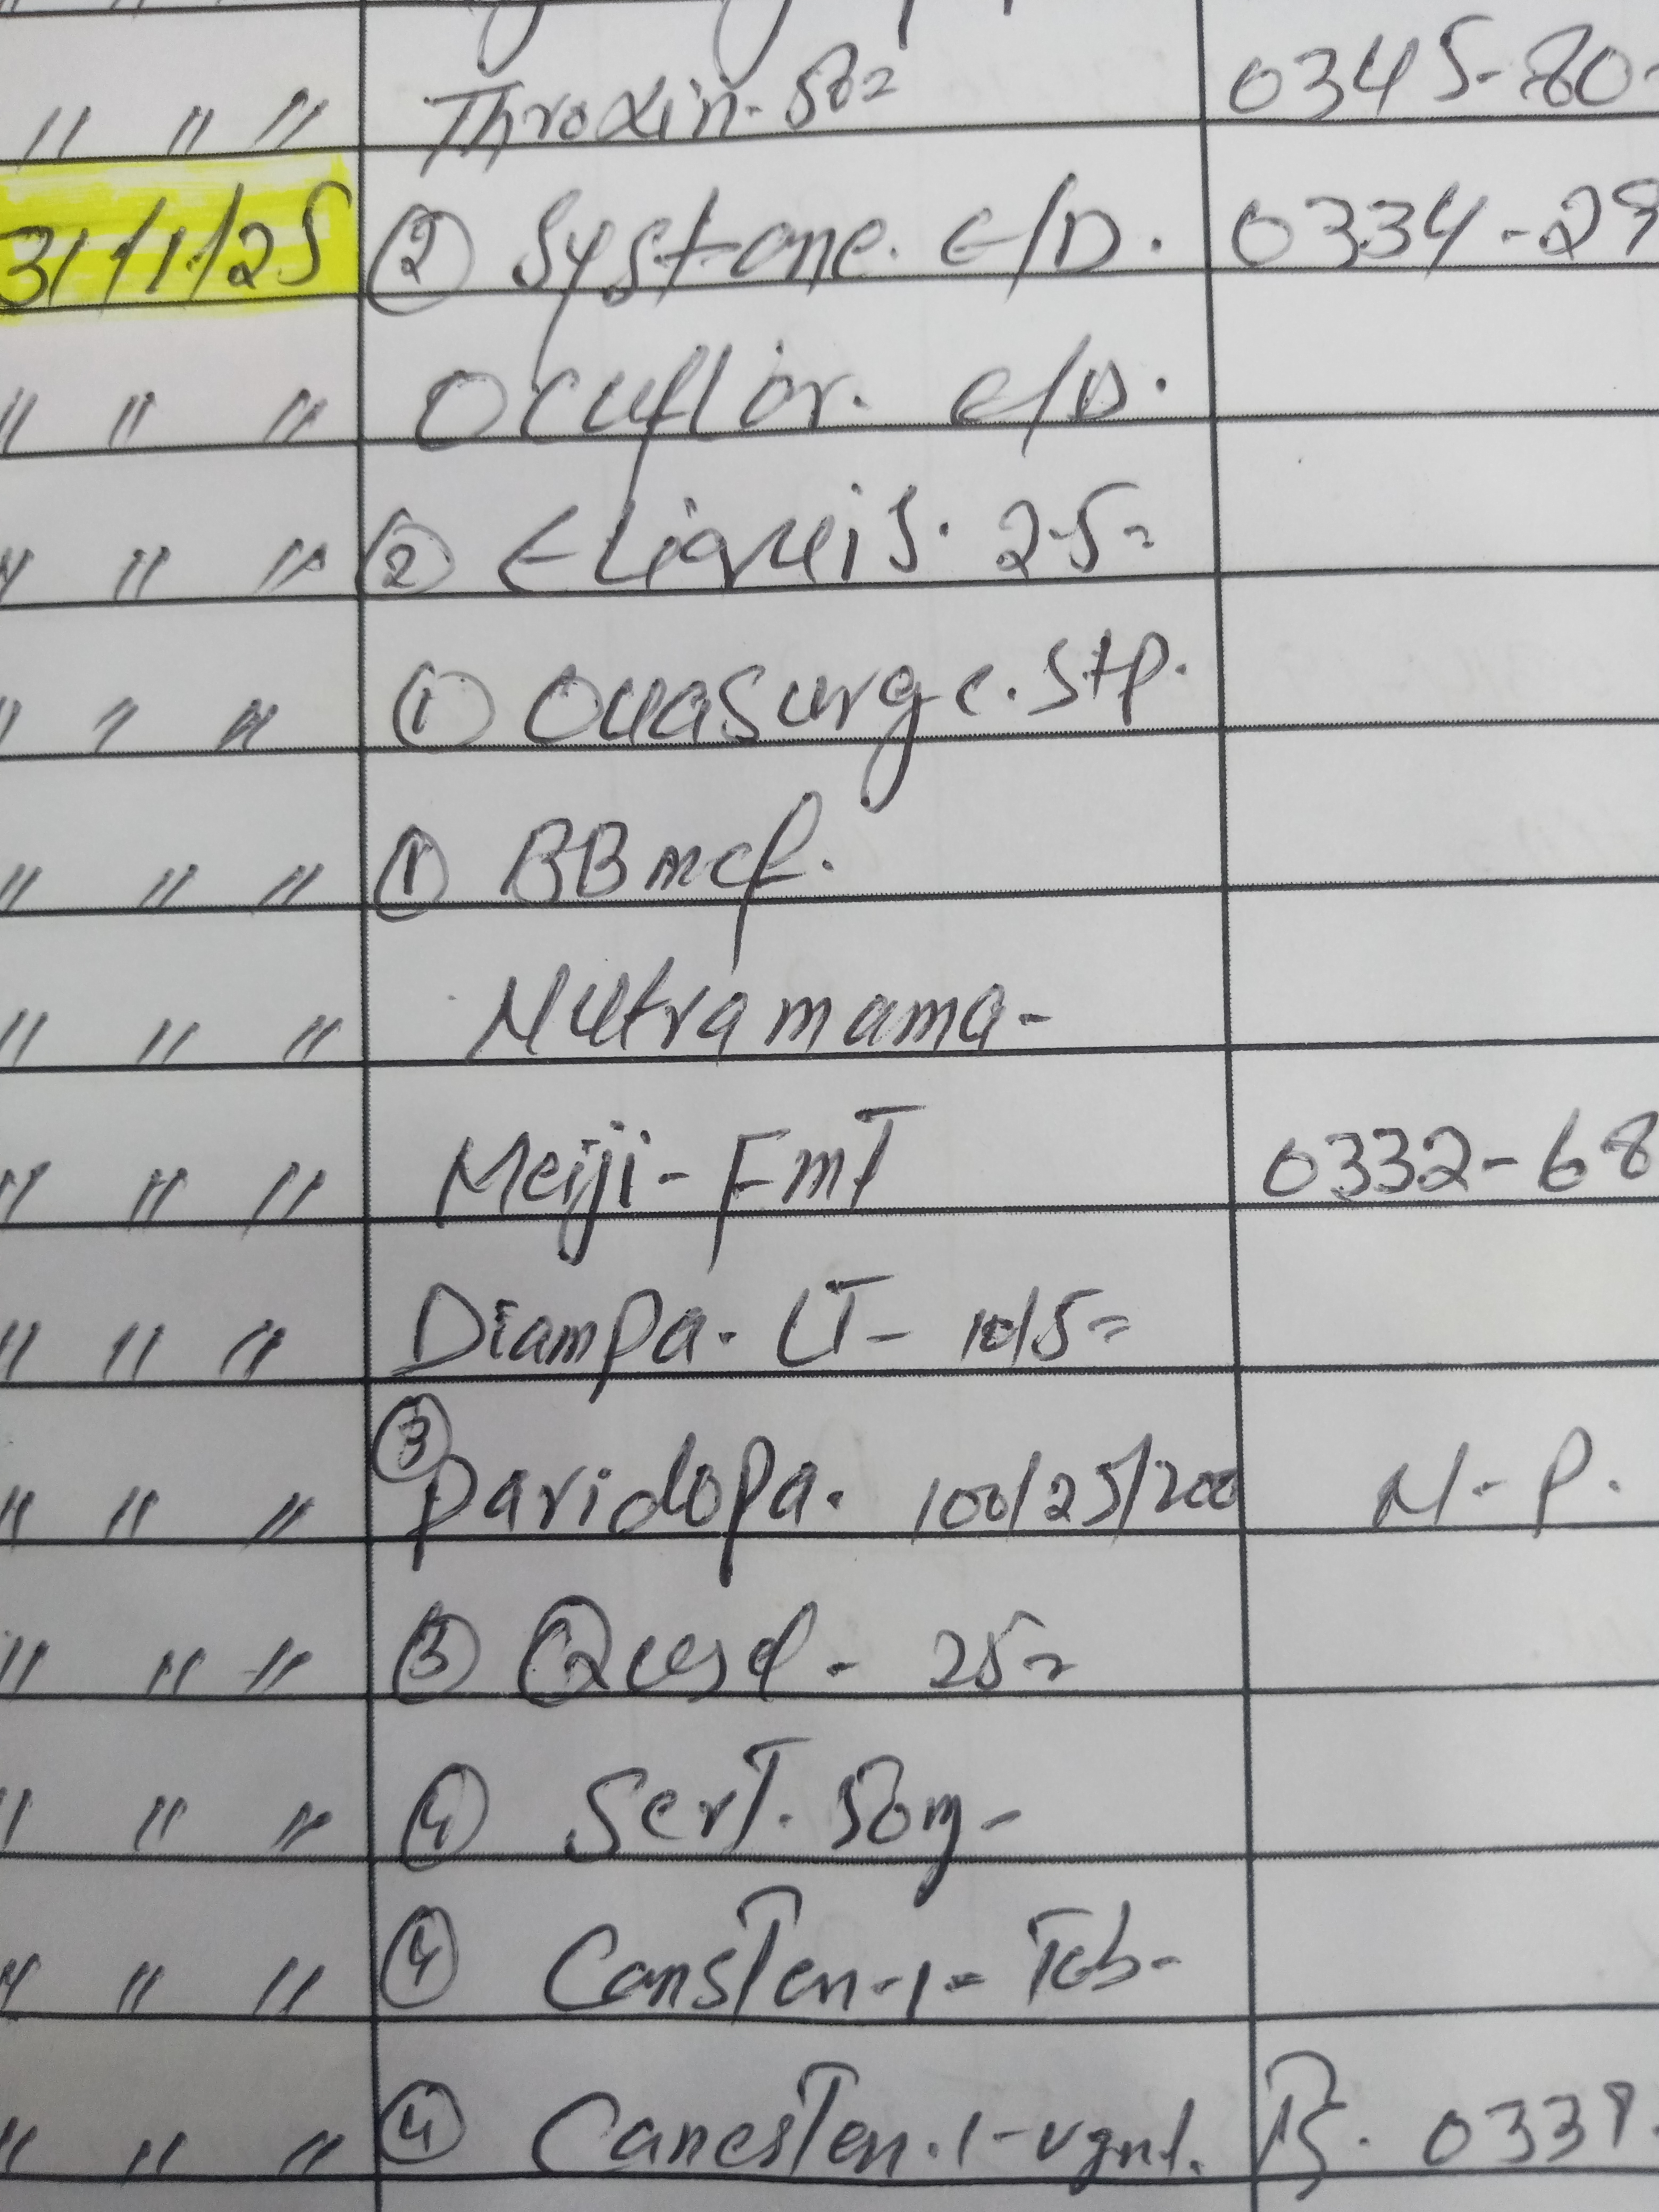 " " " Throxin. 50= 0345-80-
31/1/25 ② Systane. E/D. 0334-29
" " " Ocuflor. e/D.
" " " ② Eliqueis. 2.5=
" " " ① OuaSurge. Stp.
" " " ① BBmcf.
" " " Nutramama-
" " " Meiji- FmT 0332-68
" " " Diampa. LT- 10/5=
" " " ③ Paridopa. 100/25/200 N-P.
" " " ③ Qusel- 25=
" " " ④ SerT. 50mg-
" " " ④ CansTen-1= Tab-
" " " ④ CanesTen.1-vgnl. 0339